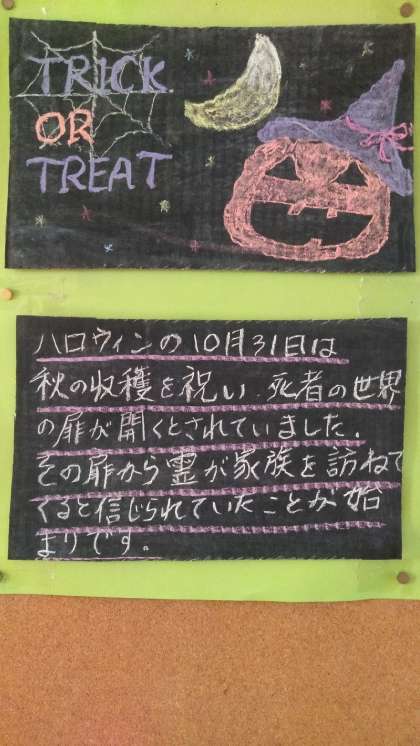 TRICK
OR
TREAT
ハロウィンの10月31日は
秋の収穫を祝い、死者の世界
の扉が開くとされていました.
その扉から霊が家族を訪ねて
くると信じられていたことが始
まりです。